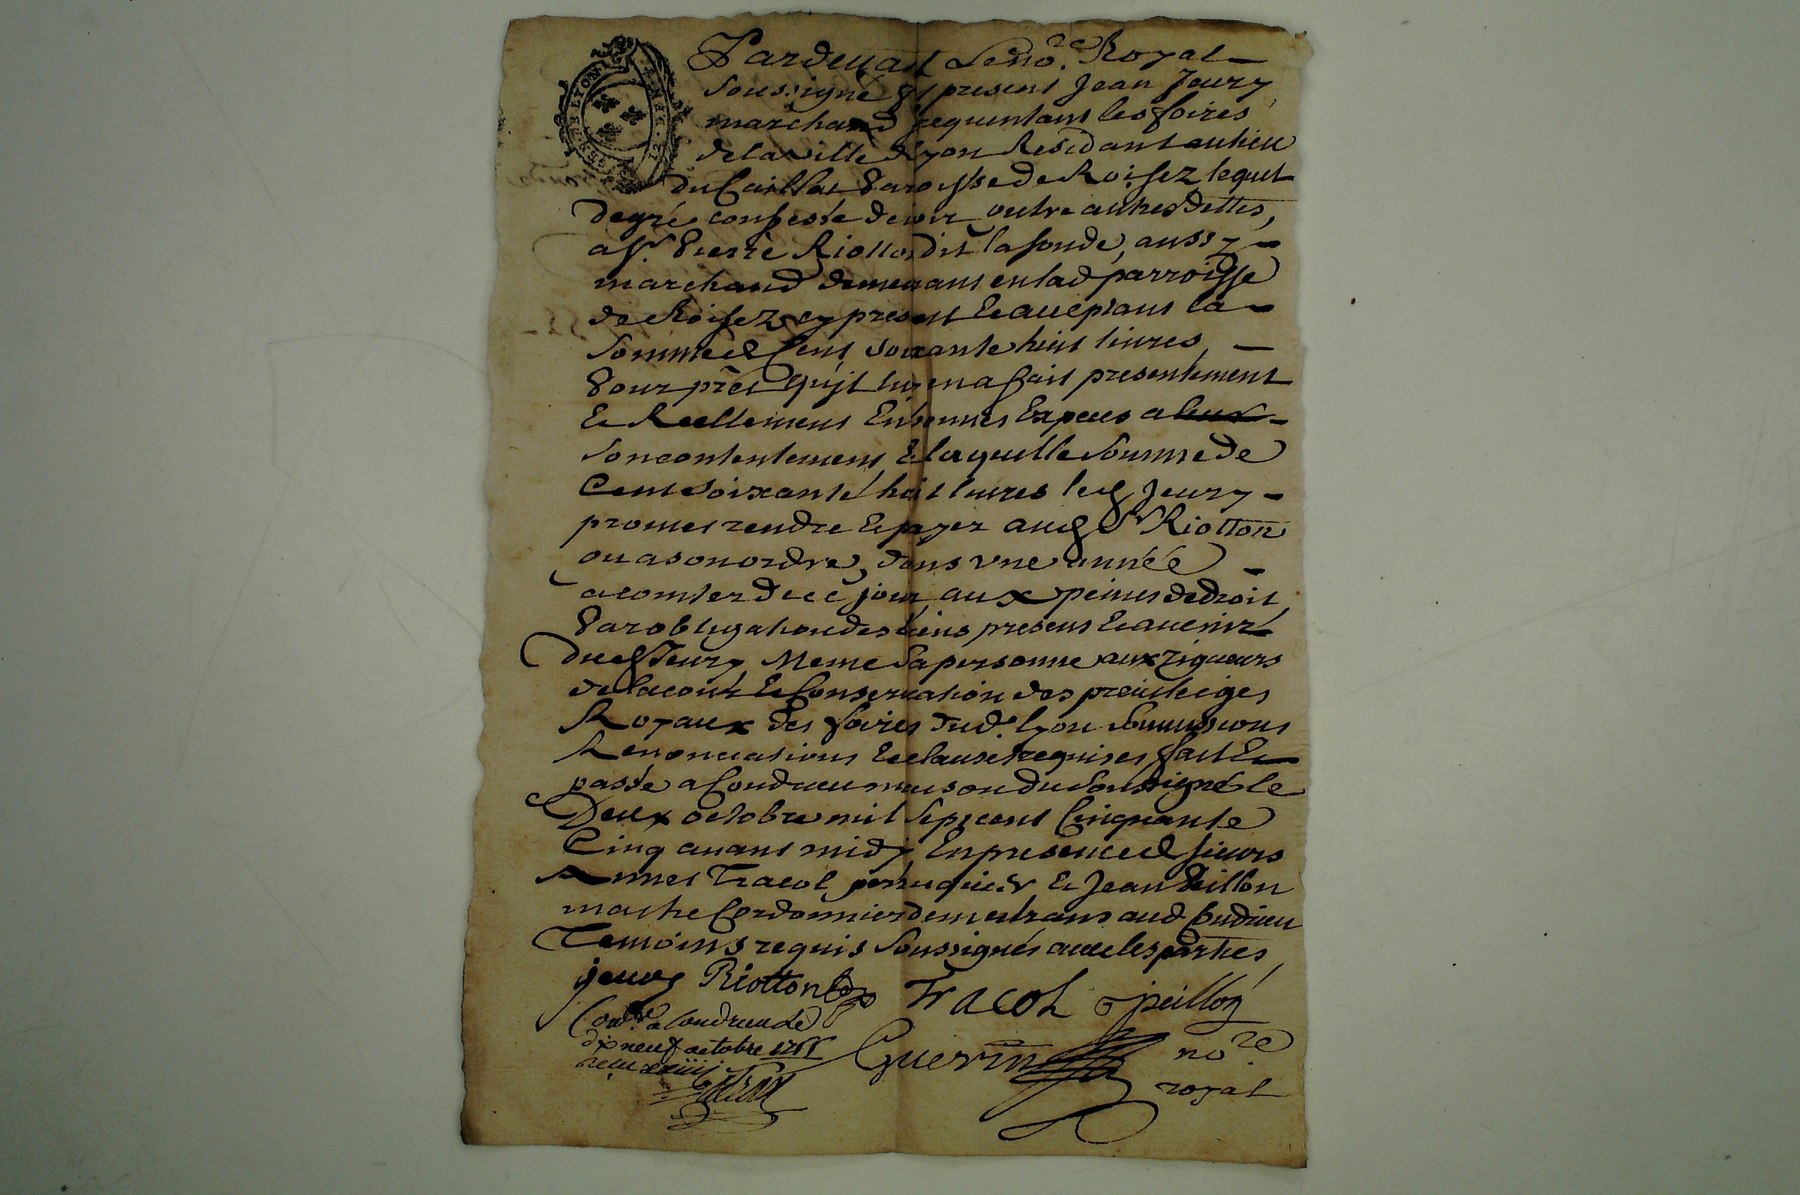 Pardevant Le no.re Royal
soussigné fut present Jean Jeury
marchand frequentant les foires
de la ville de Lyon Residant au lieu
du Caillat Paroisse de Roisez lequel
degré confesse devoir outre autres dettes,
a Sr. Pierre Riotton dit la fonde, aussy
marchand demeurant en lad parroisse
de Roisez cy present & acceptant la
somme de Cent soixante huit livres
Pour prêt qu'jl luy en a fait presentement
& Reellement En bonnes Especes a
son contentement, & laquelle somme de
Cent soixante huit livres led Jeury
promet rendre & payer aud Sr Riotton
ou a son ordre, dans une année
a comter de ce jour, aux peines de droit
Par obligation des biens presens & avenir
dud Jeury Meme sa personne aux rigueurs
de la cour & Conservation des privileiges
Royaux des foires dud. Lyon soumissions
Renonciations & clauses requises fait &
passé a Condrieu maison du soussigné le
Deux octobre mil sept cent Cinquante
Cinq avant midy, En presence de sieurs
Annet Tracol perruquier & Jean Peillon
maitre Cordonnier demeurans aud Condrieu
Temoins requis soussignés avec les parties,
jeury Riotton Tracol j peillon
Con.lé a Condrieu le
dix neuf octobre 1755
Guerin no.re
royal